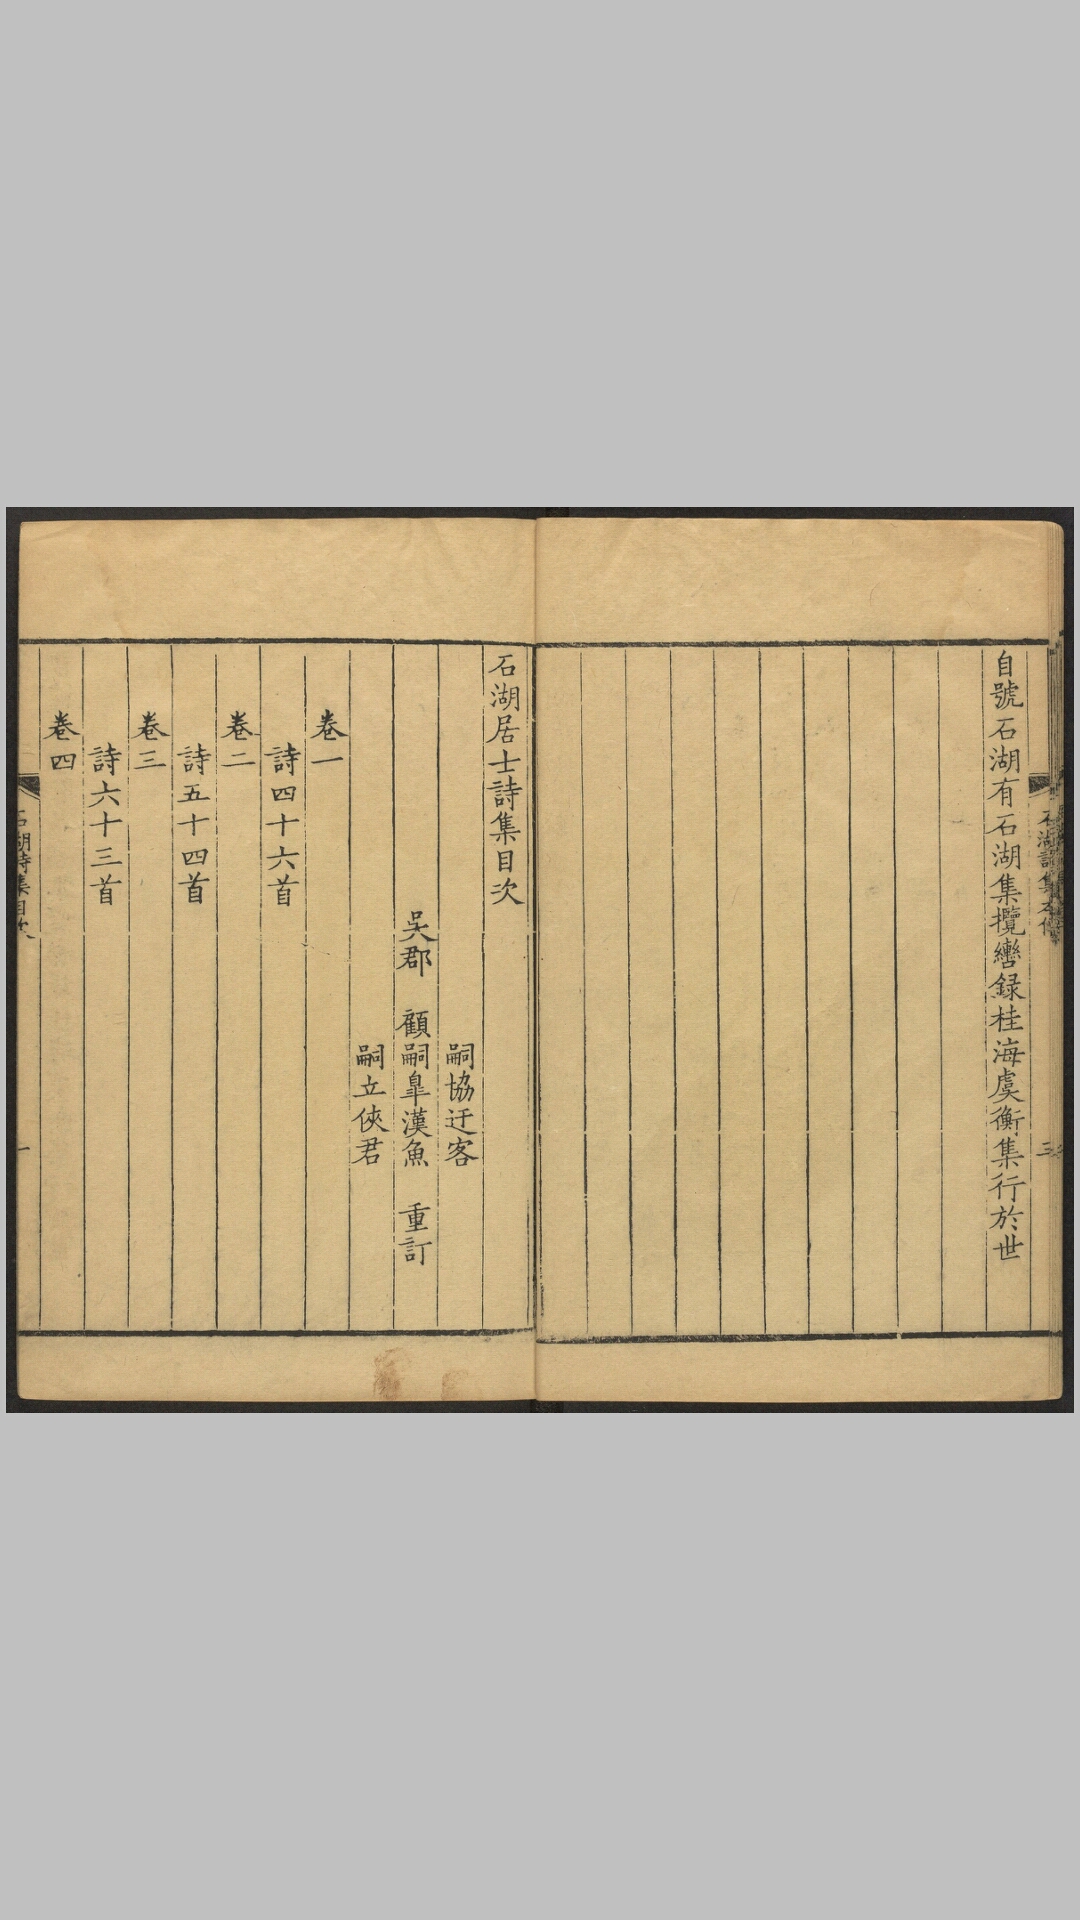 石湖詩集本傳
三
自號石湖有石湖集攬轡録桂海虞衡集行於世
石湖居士詩集目次
嗣協迂客
吳郡　顧嗣臯漢魚　重訂
嗣立俠君
卷一
詩四十六首
卷二
詩五十四首
卷三
詩六十三首
卷四
石湖詩集目次
一